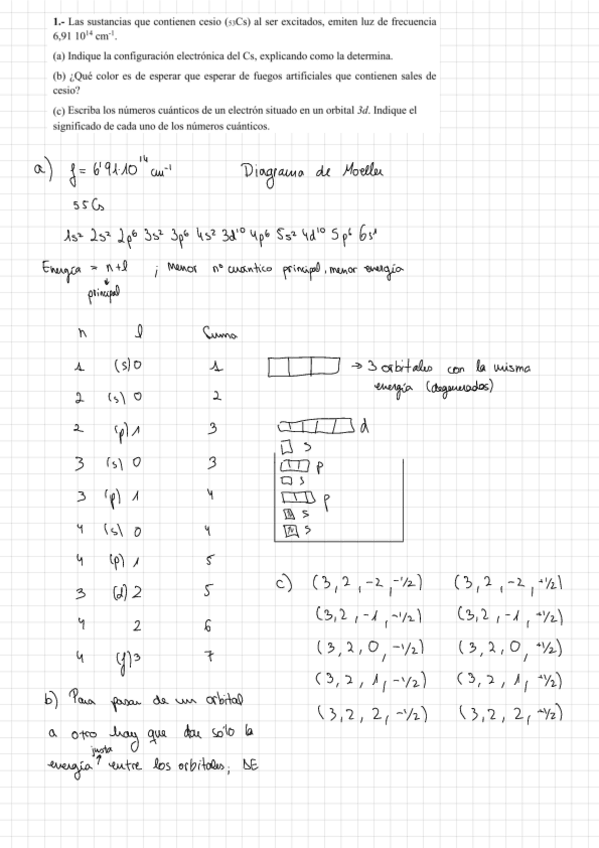 1.- Las sustancias que contienen cesio (₅₃Cs) al ser excitados, emiten luz de frecuencia
6,91 10¹⁴ cm⁻¹.
(a) Indique la configuración electrónica del Cs, explicando como la determina.
(b) ¿Qué color es de esperar que esperar de fuegos artificiales que contienen sales de
cesio?
(c) Escriba los números cuánticos de un electrón situado en un orbital 3d. Indique el
significado de cada uno de los números cuánticos.
a) f = 6'91·10¹⁴ cm⁻¹ Diagrama de Moeller
55Cs
1s² 2s² 2p⁶ 3s² 3p⁶ 4s² 3d¹⁰ 4p⁶ 5s² 4d¹⁰ 5p⁶ 6s¹
Energía = n+l ; Menor nº cuantico principal, menor energía
principal
n l Suma
1 (s) 0 1
2 (s) 0 2
2 (p) 1 3
3 (s) 0 3
3 (p) 1 4
4 (s) 0 4
4 (p) 1 5
3 (d) 2 5
4 2 6
4 (f) 3 7
→ 3 orbitales con la misma
energía (degenerados)
d
s
p
s
p
s
s
c) (3, 2, -2, -1/2) (3, 2, -2, +1/2)
(3, 2, -1, -1/2) (3, 2, -1, +1/2)
(3, 2, 0, -1/2) (3, 2, 0, +1/2)
(3, 2, 1, -1/2) (3, 2, 1, +1/2)
(3, 2, 2, -1/2) (3, 2, 2, +1/2)
b) Para pasar de un orbital
a otro hay que dar sólo la
energía justa entre los orbitales; ΔE